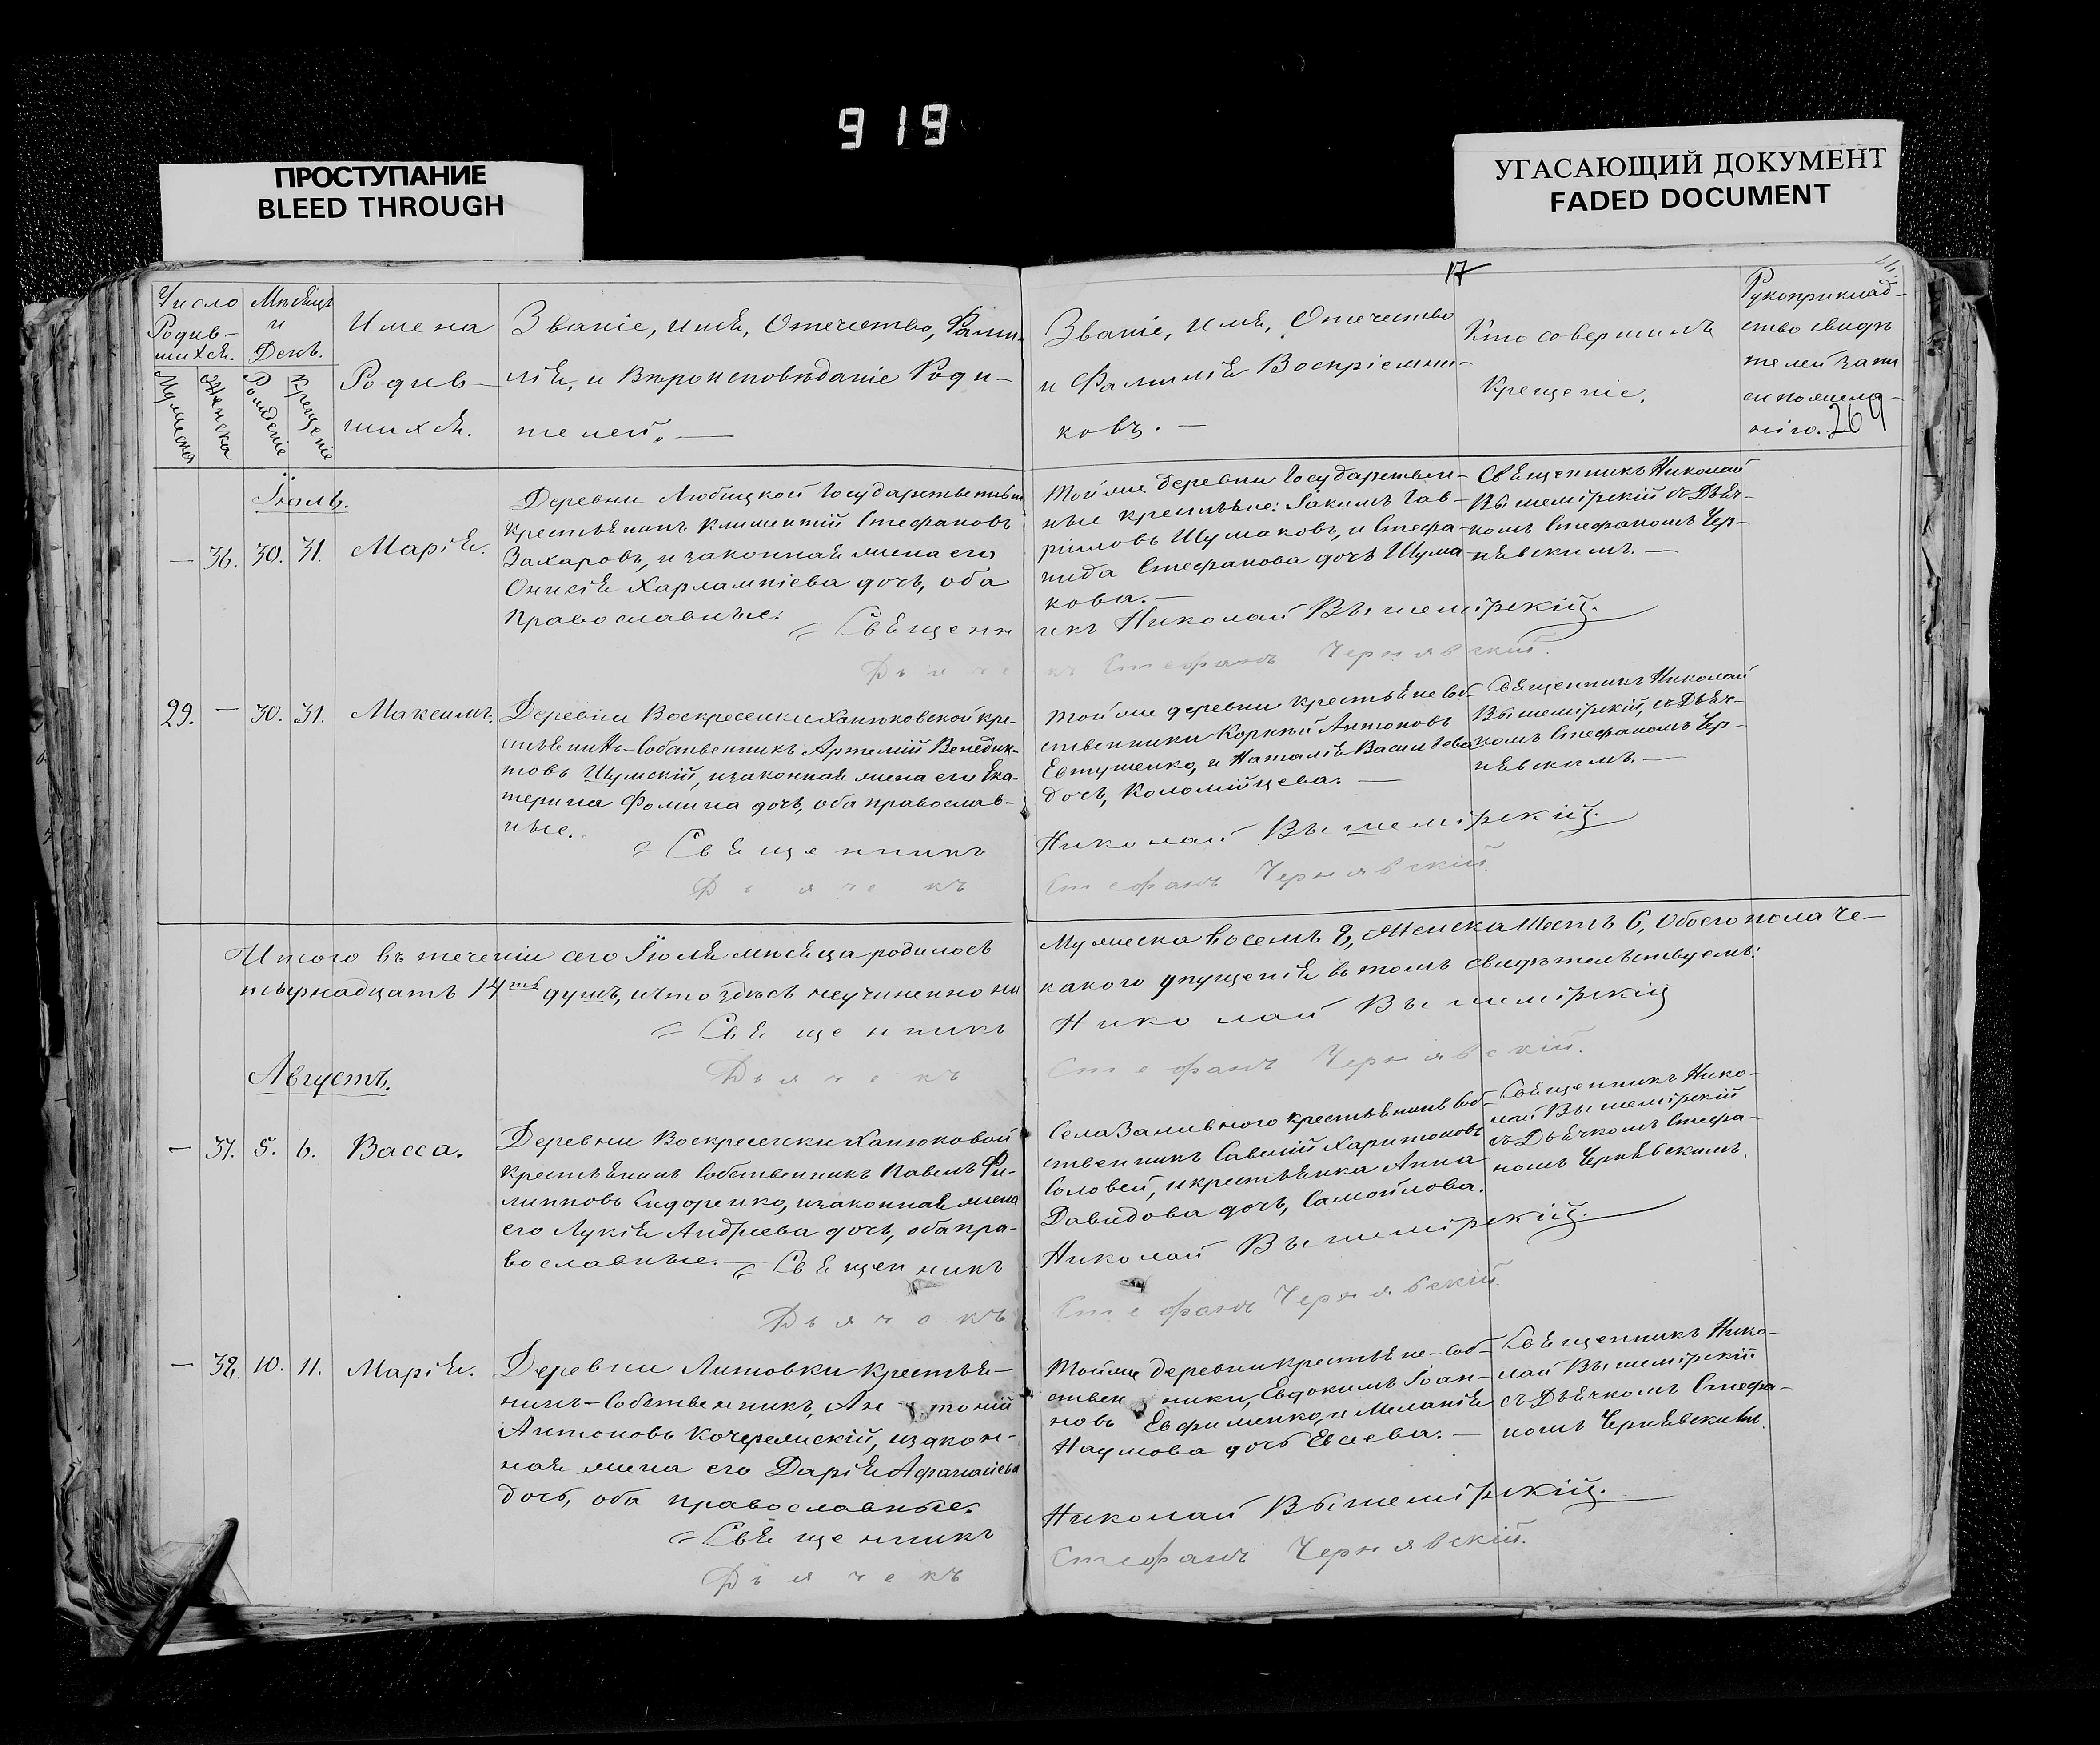 919
ПРОСТУПАНИЕ
BLEED THROUGH
УГАСАЮЩИЙ ДОКУМЕНТ
FADED DOCUMENT
17
Число Родив-
шихся.
Мужеска
Женска
Мѣсяцъ
и
День.
Рожденіе
Крещеніе
Имена
Родив-
шихся.
Званіе, имя, Отечество, Фами-
лія, и Вѣроисповѣданіе Роди-
телей. —
Званіе, имя, Отечество
и Фамилія Воспріемни-
ковъ. —
Кто совершилъ
Крещеніе.
Рукоприклад-
ство свидѣ
телей запи
си по жела-
нію.
264
Іюль.
— 36. 30. 31. Марія.
Деревни Любицкой Государственный
крестьянинъ Климентій Стефановъ
Захаровъ, и законная жена его
Онисія Харлампіева дочь, оба
православные.
Тойже деревни Государствен-
ные крестьяне: Іакимъ Гав-
риловъ Шумаковъ, и Степа-
нида Стефанова дочь Шума-
кова. —
Священникъ Николай
Вышемірскій съ Дьяч-
комъ Стефаномъ Чер-
нявскимъ. —
Священникъ Николай Вышемірскій.
Дьячекъ Стефанъ Чернявскій.
29. — 30. 31. Максимъ.
Деревни Воскресенки Ханюковской кре-
стьянинъ-Собственникъ Артемій Венедик-
товъ Шумскій, и законная жена его Ека-
терина Фомина дочь, оба православ-
ные.
Тойже деревни крестьяне Соб-
ственники Корнѣй Антоновъ
Евтушенко, и Наталія Васильева
дочь, Коломійцева. —
Священникъ Николай
Вышемірскій, съ Дьяч-
комъ Стефаномъ Чер-
нявскимъ. —
Священникъ Николай Вышемірскій.
Дьячекъ Стефанъ Чернявскій.
Итого въ теченіи сего Іюля мѣсяца родилось Мужеска восемъ 8, Женска Шесть 6, Обоего пола че-
тырнадцать 14ть душъ, и что здѣсь неучиненно ни какого упущенія въ томъ свидѣтельствуемъ:
Священникъ Николай Вышемірскій
Дьячекъ Стефанъ Чернявскій.
Августъ.
— 37. 5. 6. Васса.
Деревни Воскресенки Ханюковой
Крестьянинъ Собственникъ Павелъ Фи-
липповъ Сидоренко, и законная жена
его Лукія Андреева дочь, оба пра-
вославные. —
Села Заливного крестьянинъ Соб-
ственникъ Савелій Харитоновъ
Соловей, и крестьянка Анна
Давидова дочь, Самойлова.
Священникъ Нико-
лай Вышемірскій
съ Дьячкомъ Стефа-
номъ Чернявскимъ.
Священникъ Николай Вышемірскій.
Дьячокъ Стефанъ Чернявскій.
— 38. 10. 11. Марія.
Деревни Литовки Крестья-
нинъ-Собственникъ, Антоній
Антоновъ Кочережскій, и закон-
ная жена его Дарія Афанасіева
дочь, оба православные.
Тойже деревни крестьяне-Соб-
ственники, Евдокимъ Іоан-
новъ Евфименко, и Меланія
Наумова дочь Евсева. —
Священникъ Нико-
лай Вышемірскій
съ Дьячкомъ Стефа-
номъ Чернявскимъ.
Священникъ Николай Вышемірскій.
Дьячекъ Стефанъ Чернявскій.